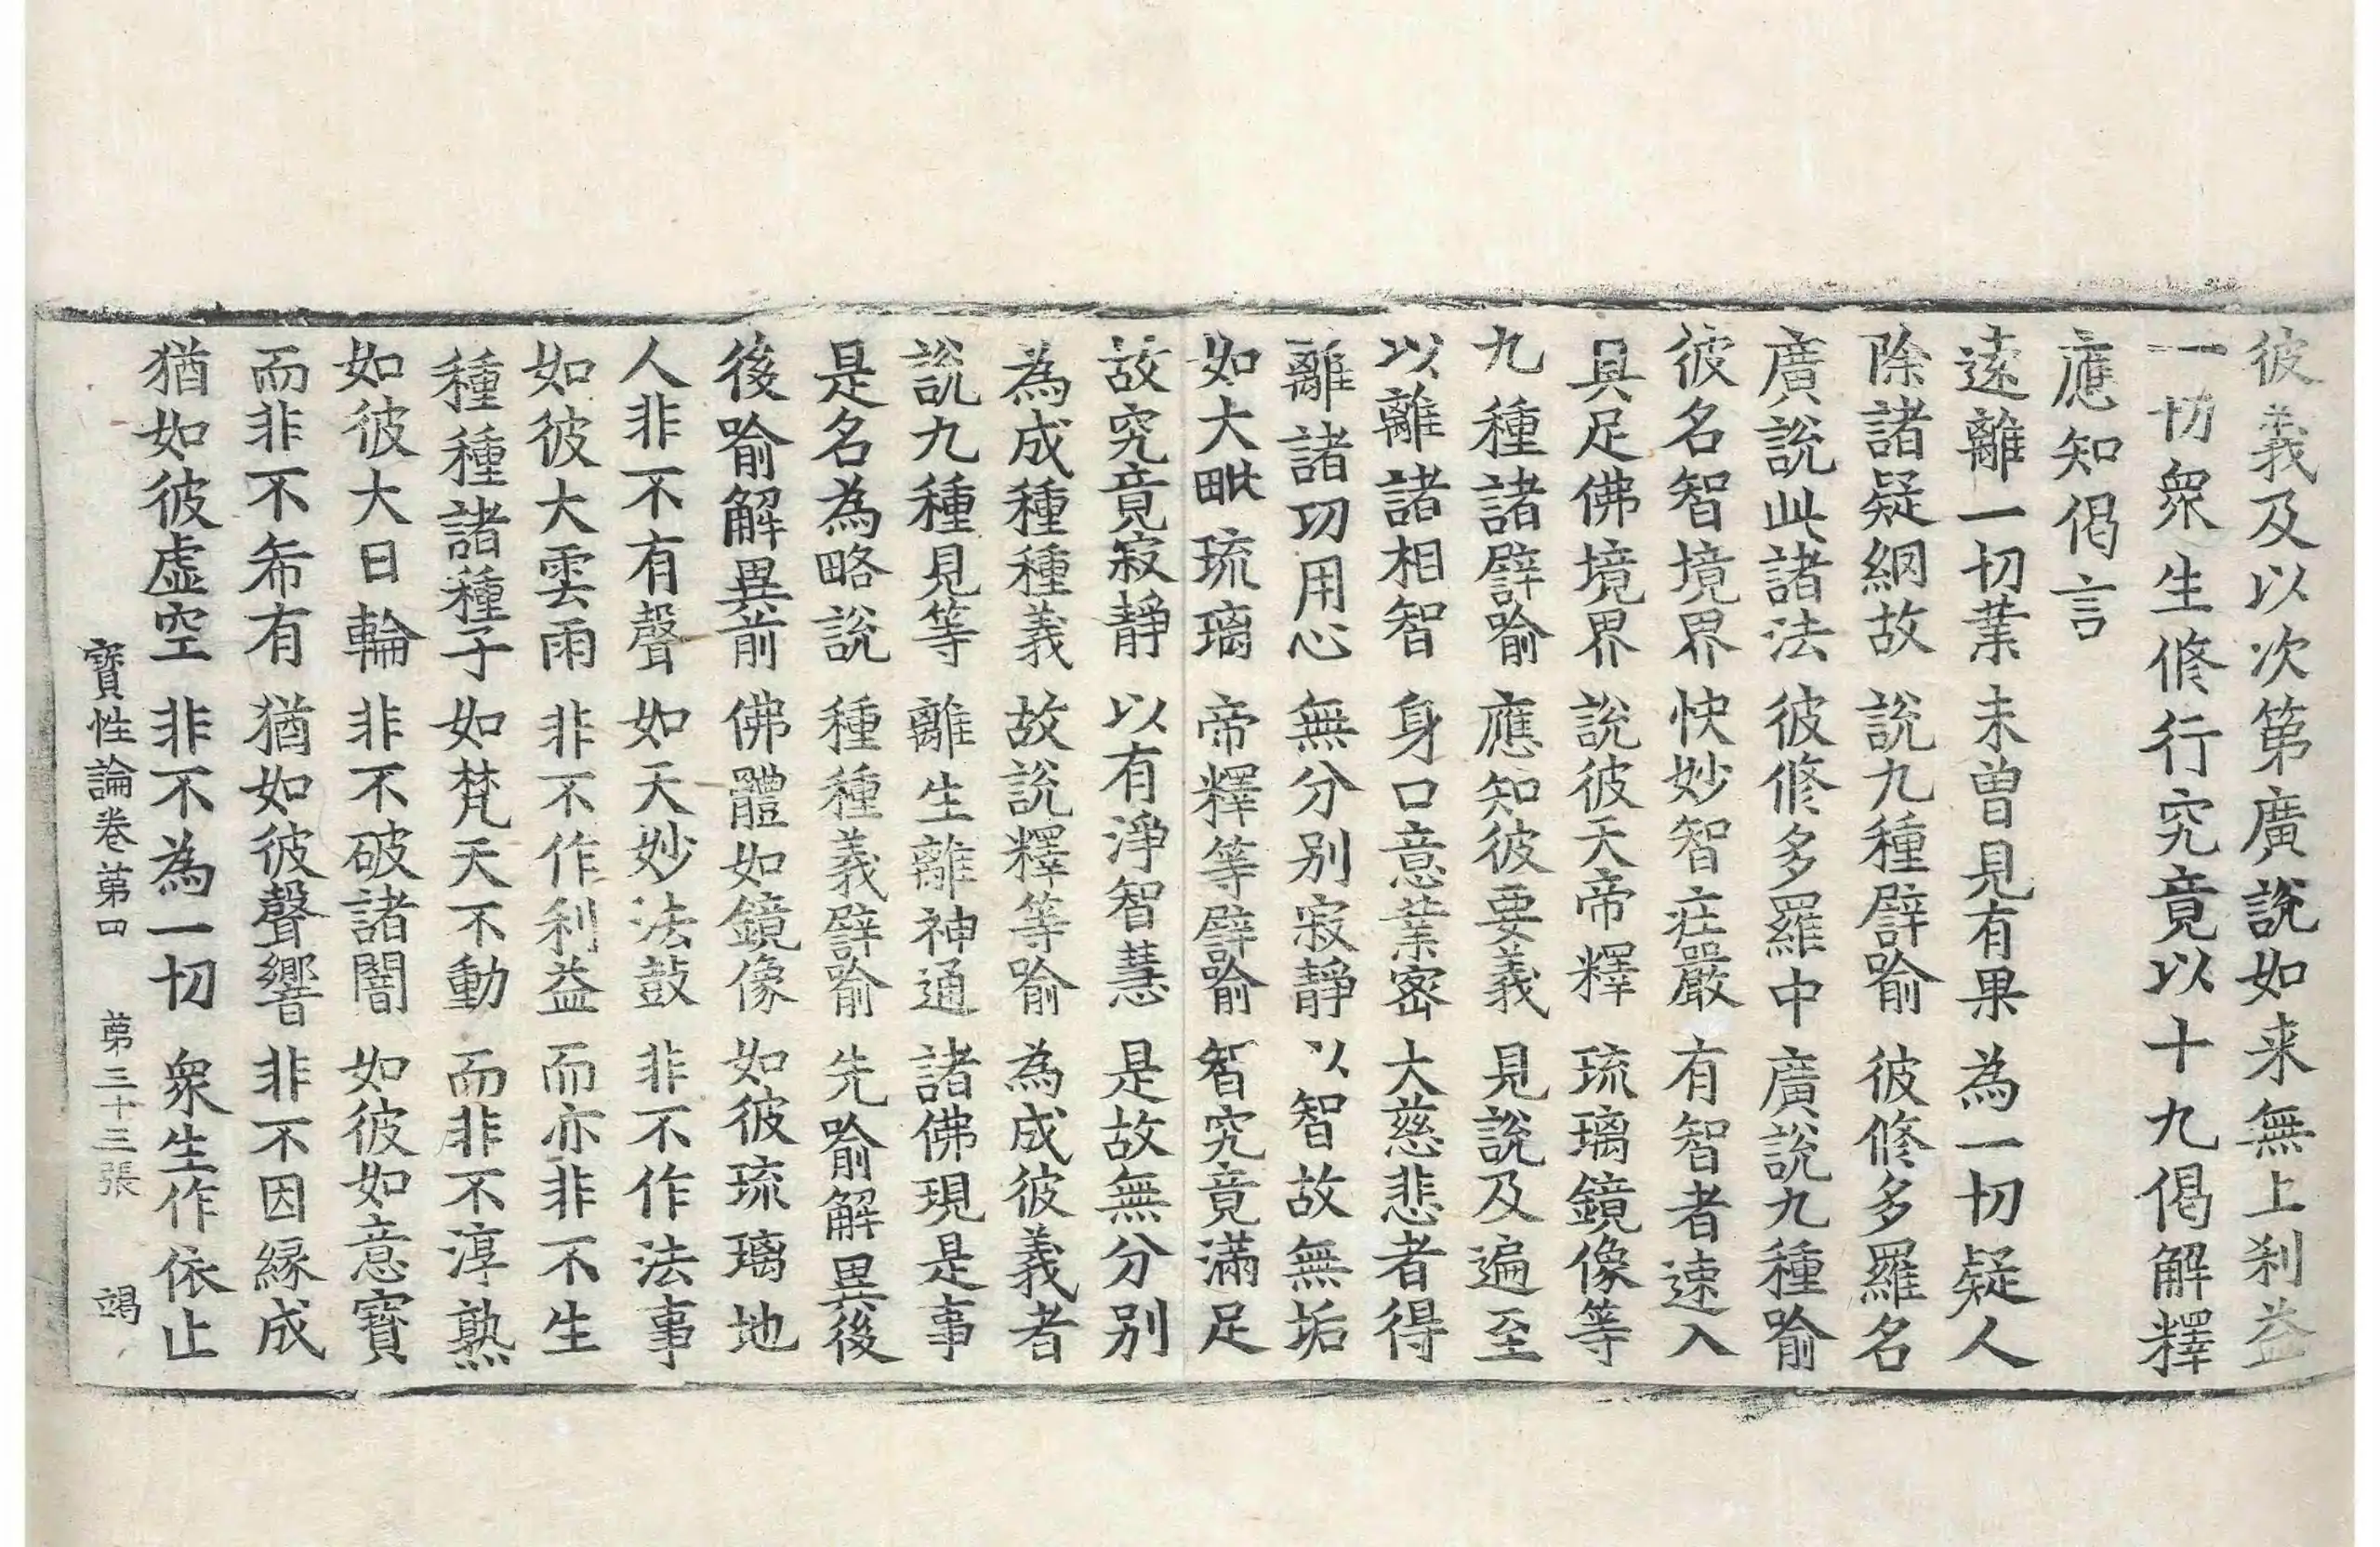 彼義及以次第廣說如来無上利益
一切衆生修行究竟以十九偈解釋
應知偈言
遠離一切業　未曾見有果　為一切疑人
除諸疑網故　說九種譬喻　彼修多羅名
廣說此諸法　彼修多羅中　廣說九種喻
彼名智境界　快妙智莊嚴　有智者速入
具足佛境界　說彼天帝釋　琉璃鏡像等
九種諸譬喻　應知彼要義　見說及遍至
以離諸相智　身口意業密　大慈悲者得
離諸功用心　無分別寂靜　以智故無垢
如大毗琉璃　帝釋等譬喻　智究竟滿足
故究竟寂靜　以有淨智慧　是故無分別
為成種種義　故說釋等喻　為成彼義者
說九種見等　離生離神通　諸佛現是事
是名為略說　種種義譬喻　先喻解異後
後喻解異前　佛體如鏡像　如彼琉璃地
人非不有聲　如天妙法鼓　非不作法事
如彼大雲雨　非不作利益　而亦非不生
種種諸種子　如梵天不動　而非不淳熟
如彼大日輪　非不破諸闇　如彼如意寶
而非不希有　猶如彼聲響　非不因緣成
猶如彼虛空　非不為一切　衆生作依止
寶性論卷第四　第三十三張　竭